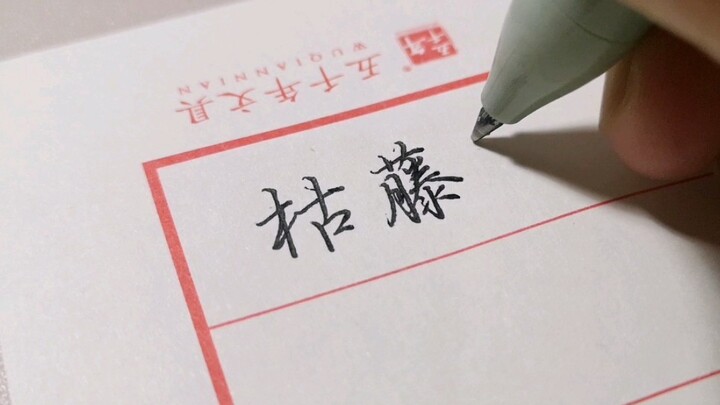 五千年文具
WUQIANNIAN
枯藤